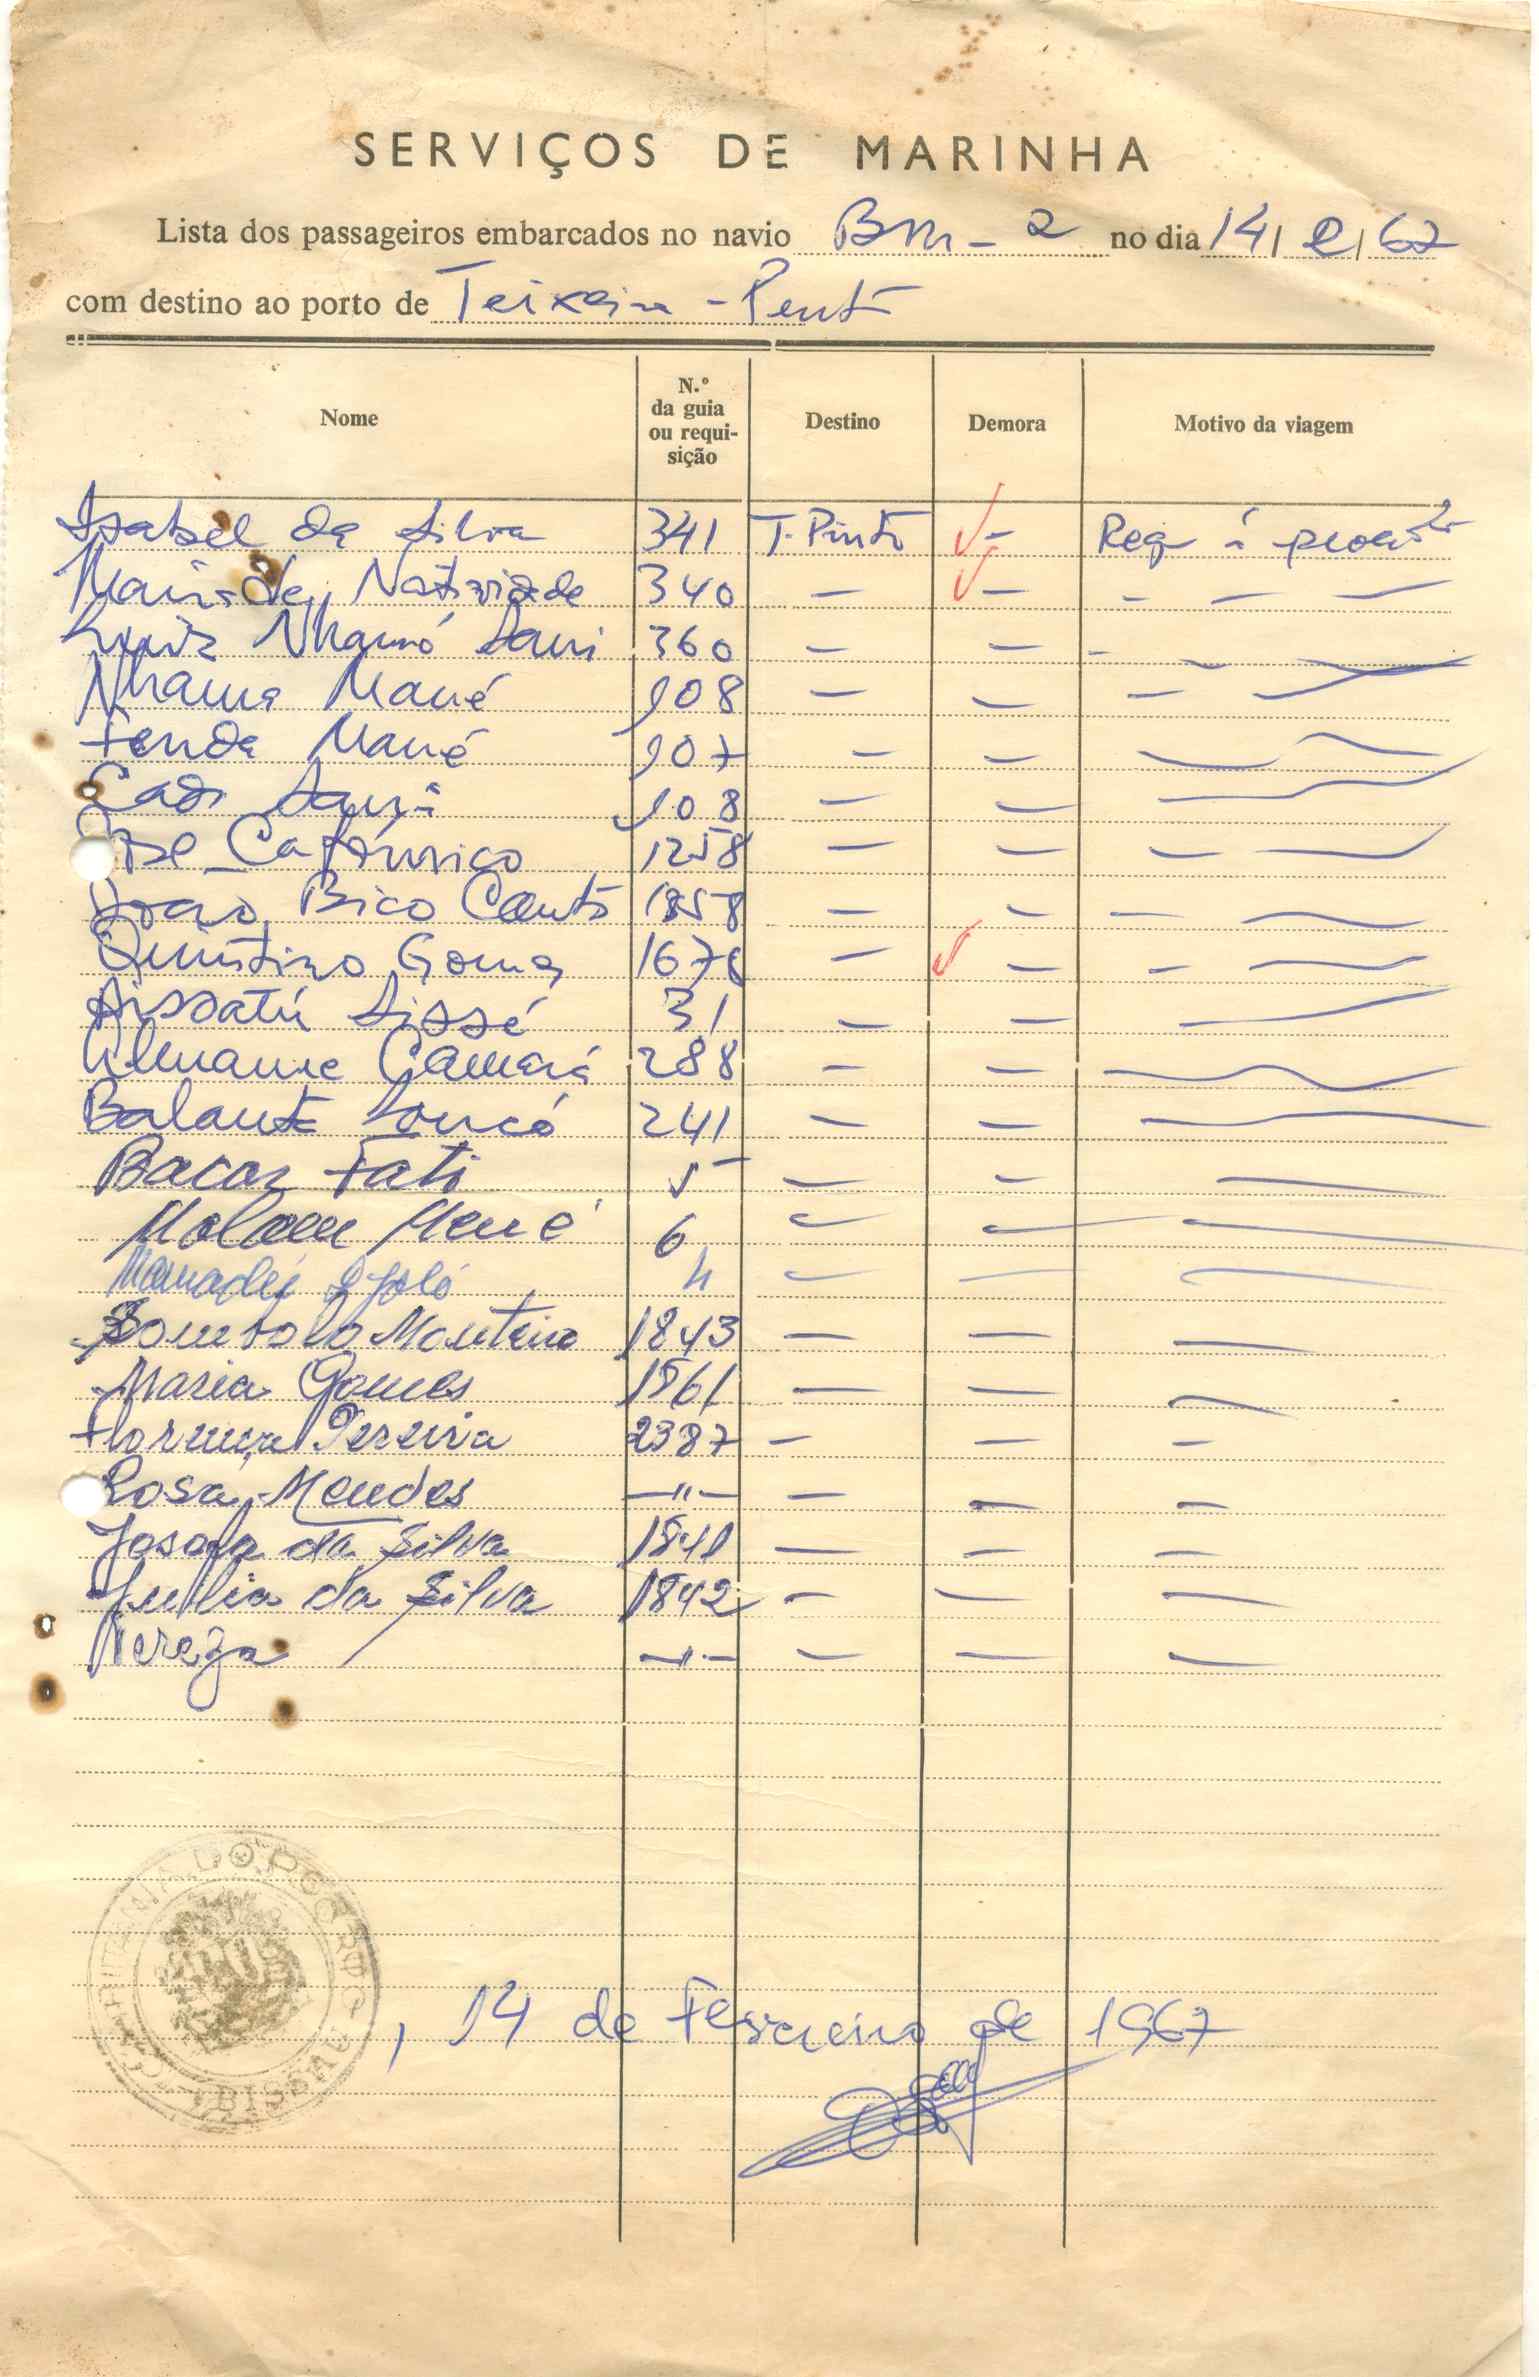 SERVIÇOS DE MARINHA
Lista dos passageiros embarcados no navio BM - 2 no dia 14/2/67
com destino ao porto de Teixeira - Pinto
Nome N.º da guia ou requisição Destino Demora Motivo da viagem
Isabel da Silva 341 T. Pinto √ - Reg à
Maria de Natividade 340 — √ — - — —
Luiz Nhamó Sani 360 — — - - —
Nhama Mané 108 — — — —
Fenda Mané 107 — — —
Cadi Sani 108 — — —
José 1258 — — — —
João Bico Couto 1858 — — — —
Quintino Gomes 167 — √ — - —
Aissatú Sissé 31 — — —
Camará 288 — — —
Balanta Soncó 241 — — —
Bacar Fati 5 — — —
Malam Mané 6 — — —
Mamadú Djaló 4 — — —
Monteiro 1843 — — —
Maria Gomes 1861 — — —
Florença Pereira 2387 — — —
Rosa Mendes —"— — — —
Josefa da Silva 1841 — — —
Julia da Silva 1842 — — —
Nereza —"— — — —
CAPITANIA DO PORTO BISSAU
, 14 de Fevereiro de 1967